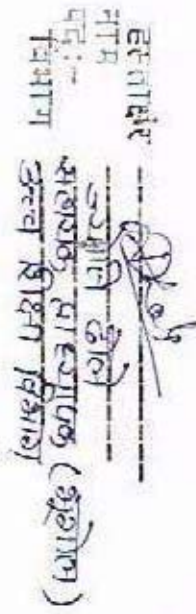 हस्ताक्षर
नाम
पद:- सहायक प्राध्यापक (भूगोल)
विभाग उच्च शिक्षा विभाग